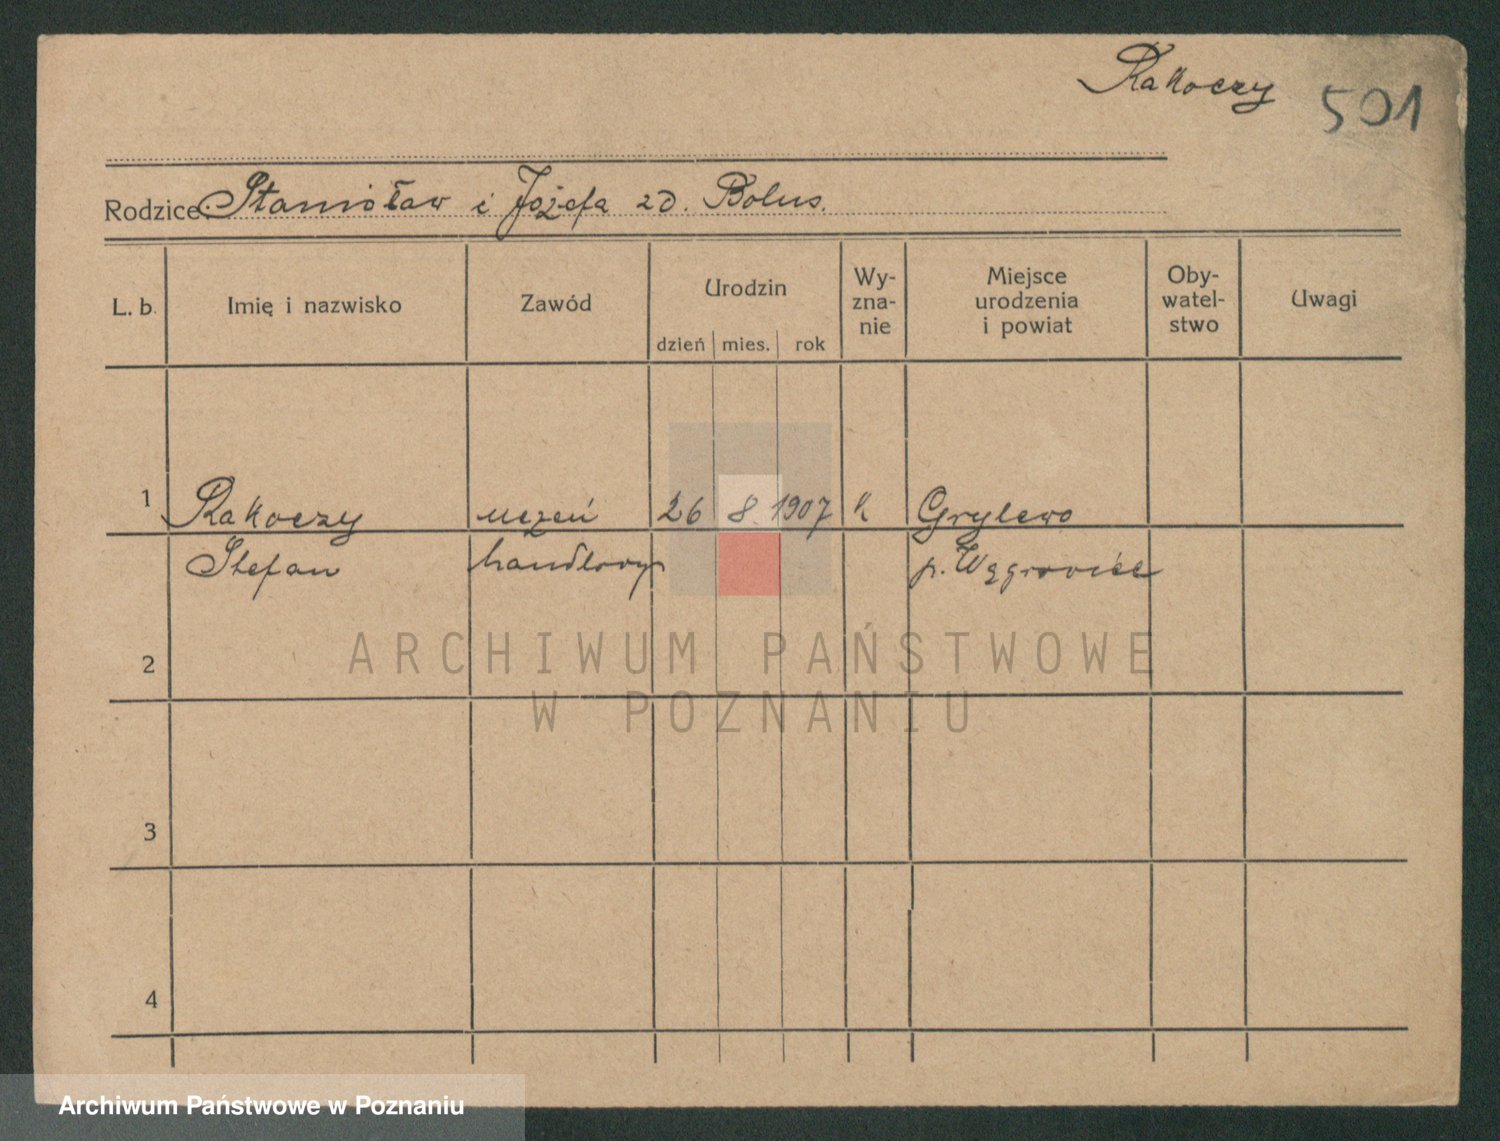 Rakoczy 501
Rodzice: Stanisław i Józefa zd. Bolus.
L. b. Imię i nazwisko Zawód Urodzin Wy-zna-nie Miejsce urodzenia i powiat Oby-watel-stwo Uwagi
dzień mies. rok
1 Rakoczy uczeń 26 8. 1907 k Grylewo
Stefan handlowy p. Wągrowiec
2
ARCHIWUM PAŃSTWOWE
W POZNANIU
3
4
Archiwum Państwowe w Poznaniu